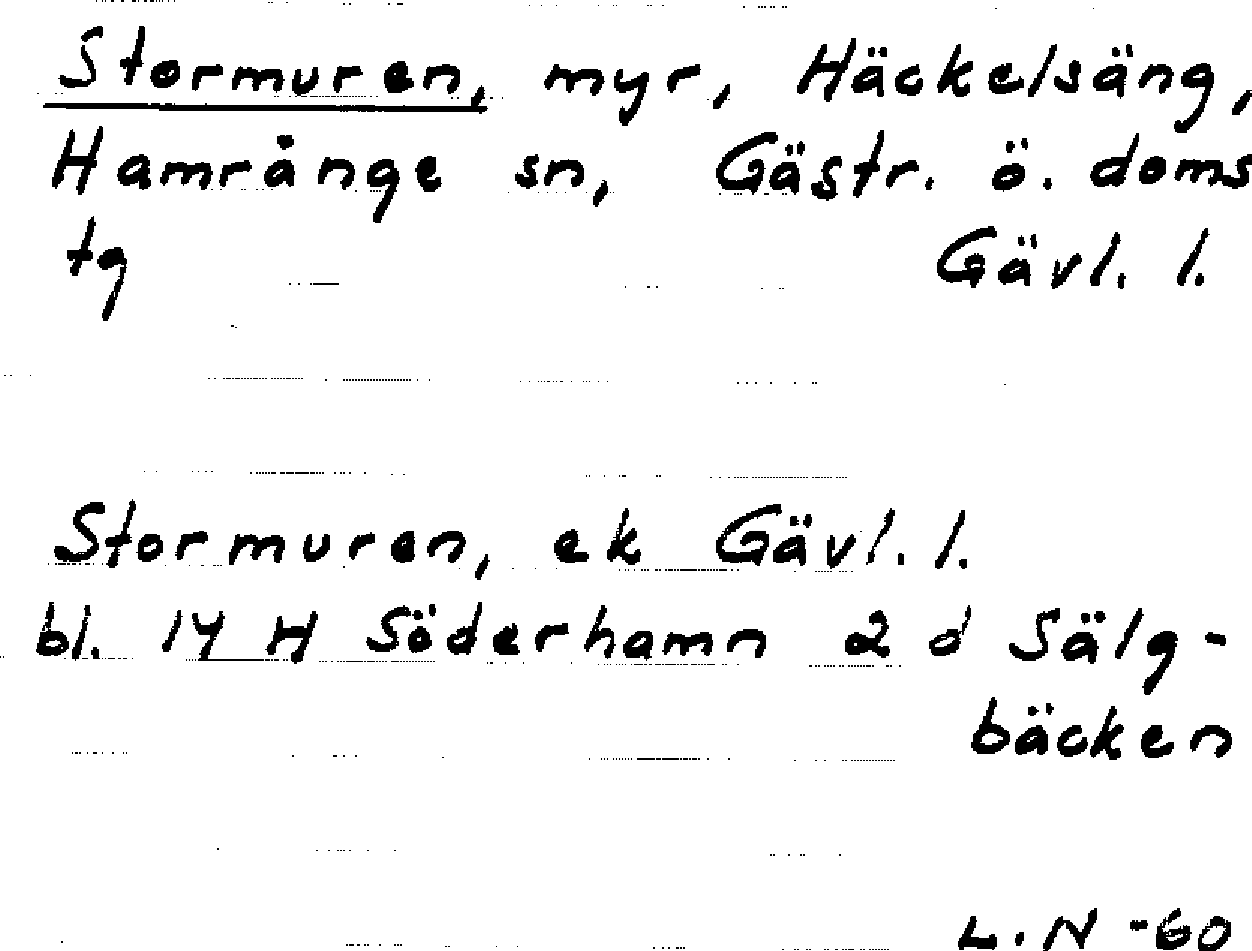 Stormuren, myr, Häckelsäng,
Hamrånge sn, Gästr. ö. doms
tg Gävl. l.
Stormuren, ek Gävl. l.
bl. 14 H Söderhamn 2 d Sälg-
bäcken
L.N -60